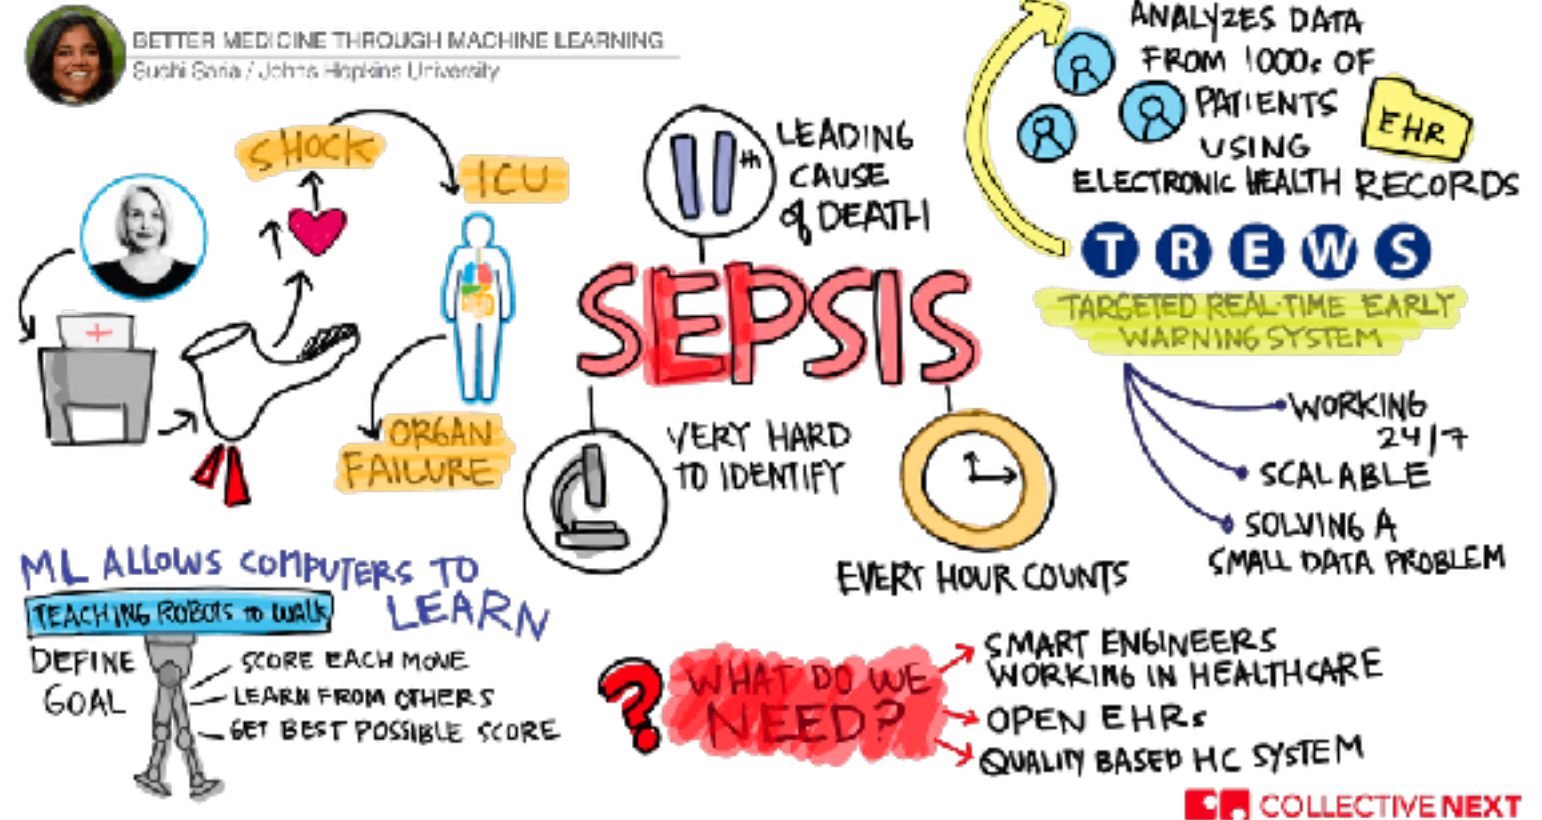 BETTER MEDICINE THROUGH MACHINE LEARNING
Suchi Saria / Johns Hopkins University
SHOCK
ICU
ORGAN
FAILURE
11th
LEADING
CAUSE
of DEATH
SEPSIS
VERY HARD
TO IDENTIFY
EVERY HOUR COUNTS
ANALYZES DATA
FROM 1000s OF
PATIENTS
USING
ELECTRONIC HEALTH RECORDS
EHR
TREWS
TARGETED REAL-TIME EARLY
WARNING SYSTEM
WORKING
24/7
SCALABLE
SOLVING A
SMALL DATA PROBLEM
ML ALLOWS COMPUTERS TO
LEARN
TEACHING ROBOTS TO WALK
DEFINE
GOAL
SCORE EACH MOVE
LEARN FROM OTHERS
GET BEST POSSIBLE SCORE
?
WHAT DO WE
NEED?
SMART ENGINEERS
WORKING IN HEALTHCARE
OPEN EHRs
QUALITY BASED HC SYSTEM
COLLECTIVE NEXT